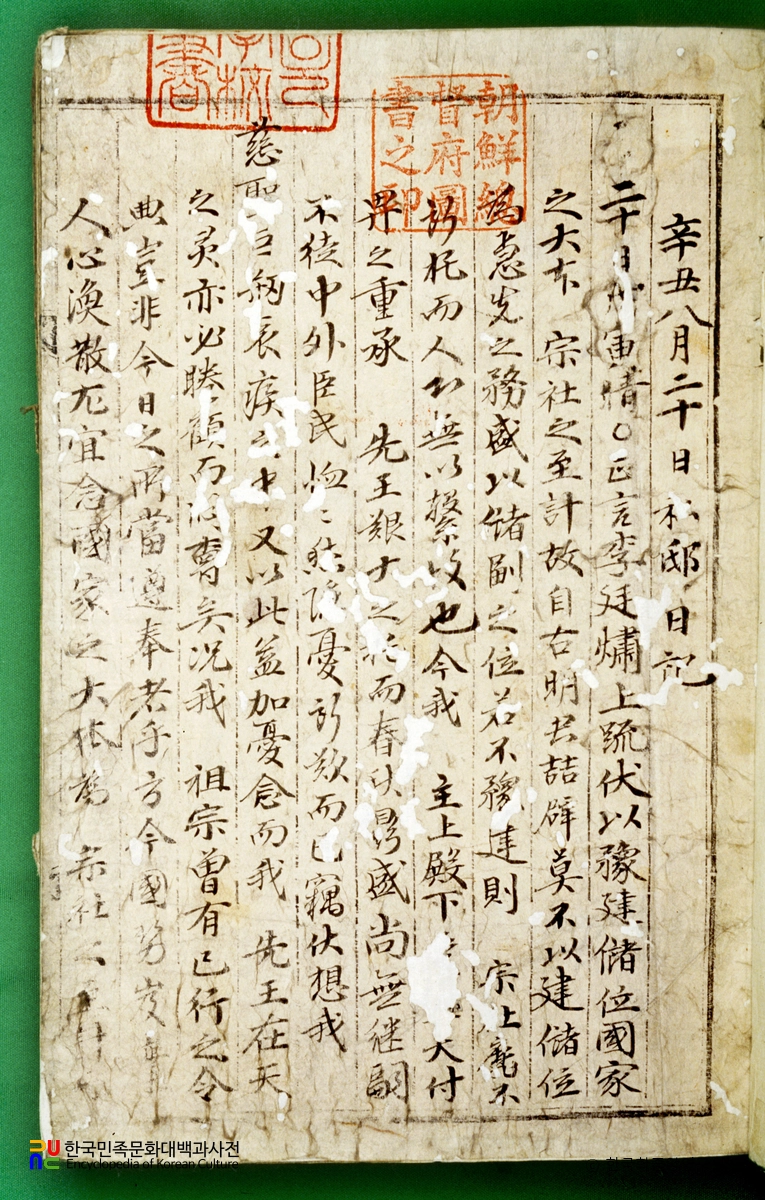 辛丑八月二十日私邸日記
二十日寅晴○正言李廷熽上疏伏以豫建儲位國家
之大本 宗社之至計故自古明君喆辟莫不以建儲位
為急先之務盛以儲副之位若不豫建則 宗社無不
所托而人心無以繫故也今我 主上殿下大付
畀之重承 先王艱大之托而春秋鼎盛尚無继嗣
不徒中外臣民悒悒愁隱憂所歎而已竊伏想我
慈聖哀疚之中又以此益加憂念而我 先王在天
之灵亦必睠顧而矣况我 祖宗曾有已行之令
典豈非今日之所當遵奉者乎方今國势岌
人心渙散尤宜念國家之大 宗社之
朝鮮總
督府圖
書之印
한국민족문화대백과사전
Encyclopedia of Korean Culture